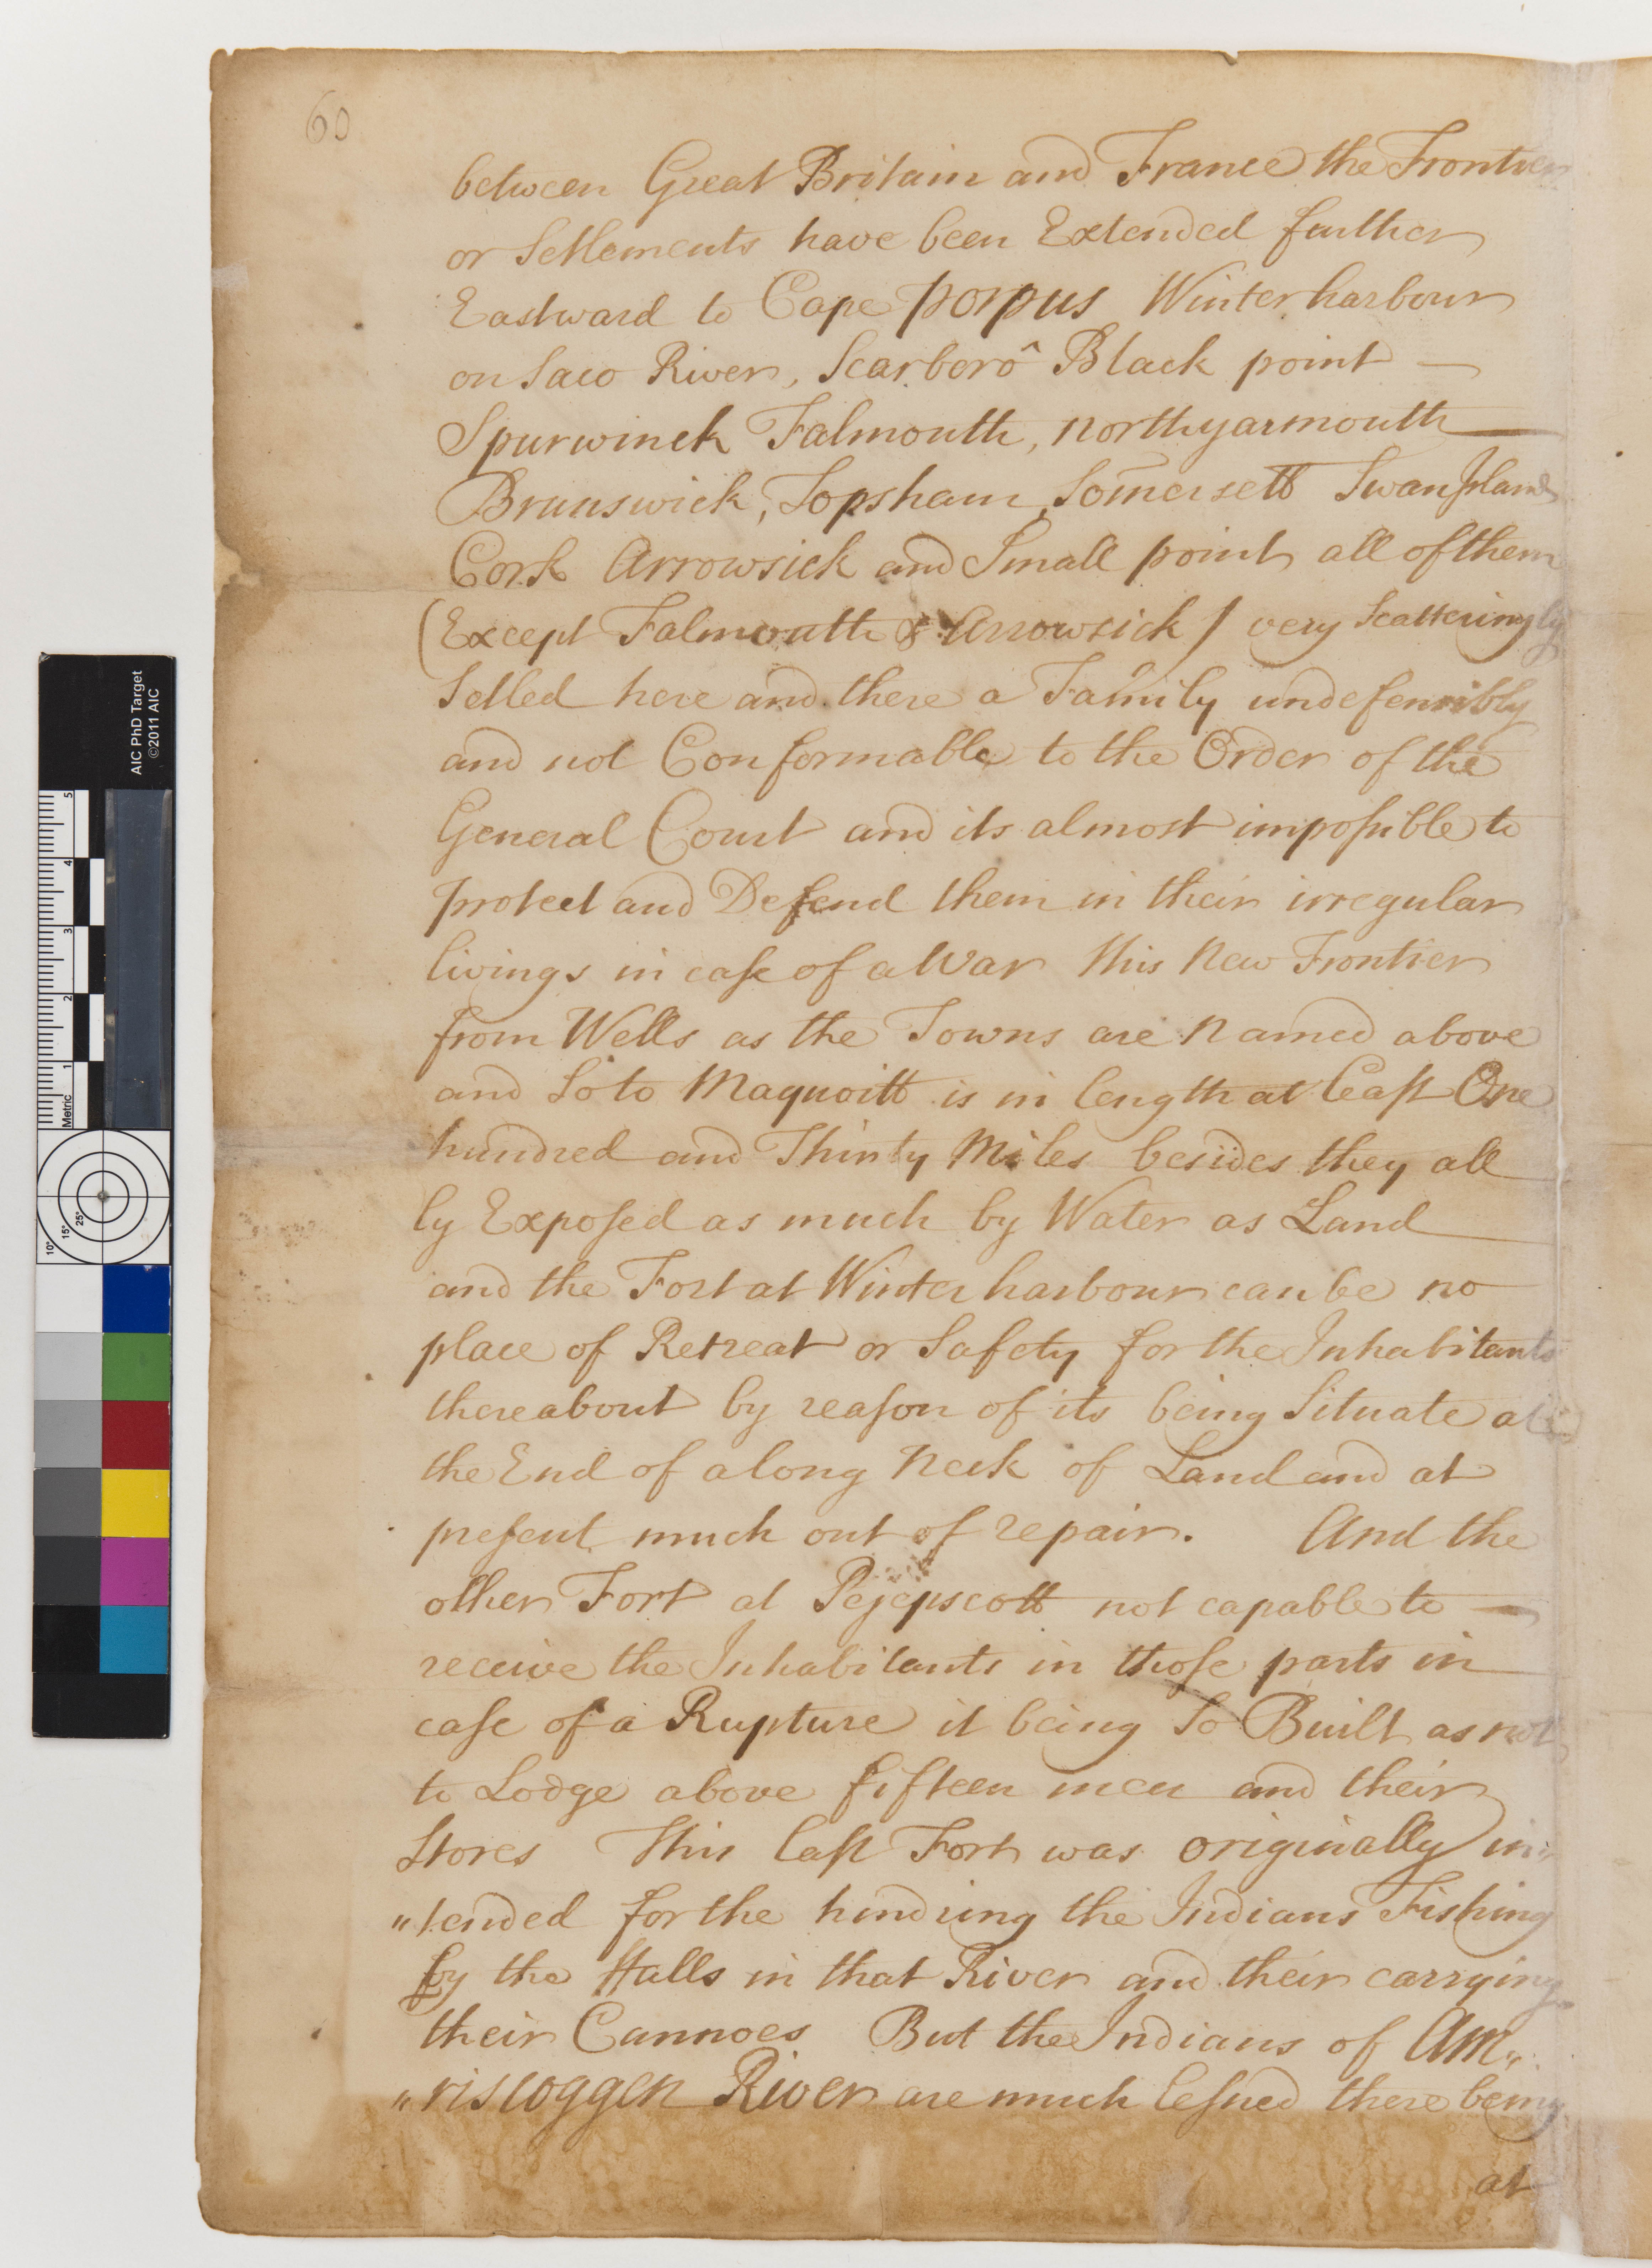 60
between Great Britain and France the Frontier
or Setlements have been Extended further
Eastward to Cape porpus Winterharbour
on Saco River, Scarboro^ Black point —
Spurwinck Falmouth, northyarmouth
Brunswick, Topsham, Somersett Swan Island
Cork Arrowsick and Small point all of them
(Except Falmouth & Arrowsick) very Scatteringly
Setled here and there a Family undefensibly
and not Conformable to the Order of the
General Court and its almost impossible to
protect and Defend them in their irregular
livings in case of a War this New Frontier
from Wells as the Towns are Named above
and So to Maquoitt is in length at least One
hundred and Thirty Miles besides they all
ly Exposed as much by Water as Land
and the Fort at Winterharbour can be no
place of Retreat or Safety for the Inhabitants
thereabout by reason of its being Situate at
the End of a long Neck of Land and at
present much out of repair. And the
other Fort at Pejepscott not capable to —
receive the Inhabitants in those parts in
case of a Rupture it being So Built as not
to Lodge above fifteen men and their
Stores This last Fort was originally in„
„tended for the hindring the Indians Fishing
by the ffalls in that River and their carrying
their Cannoes But the Indians of Am„
„riscoggen River are much lesned there being
at
AIC PhD Target
©2011 AIC
5
4
3
2
1
Metric
10° 15° 25°